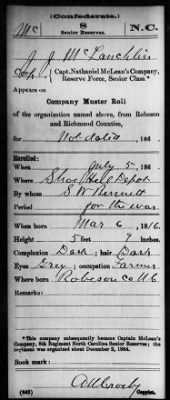 (Confederate.)
Mc S N.C.
Senior Reserves.
J. J. McLauchlin
Capt. Nathaniel McLean's Company,
Reserve Force, Senior Class.*
Appears on
Company Muster Roll
of the organization named above, from Robeson
and Richmond Counties,
for Not dated, 186 .
Enrolled:
When July 5, 186
Where Shoe Heel Depot
By whom S W Bennett
Period for the war
When born Mar 6, 1816
Height 5 feet 9 inches
Complexion Dark; hair Dark
Eyes Grey; occupation Farmer
Where born Robeson co N C
Remarks:
*This company subsequently became Captain McLean's
Company, 8th Regiment North Carolina Senior Reserves; the
regiment was organized about December 2, 1864.
Book mark:
(642) Copyist.